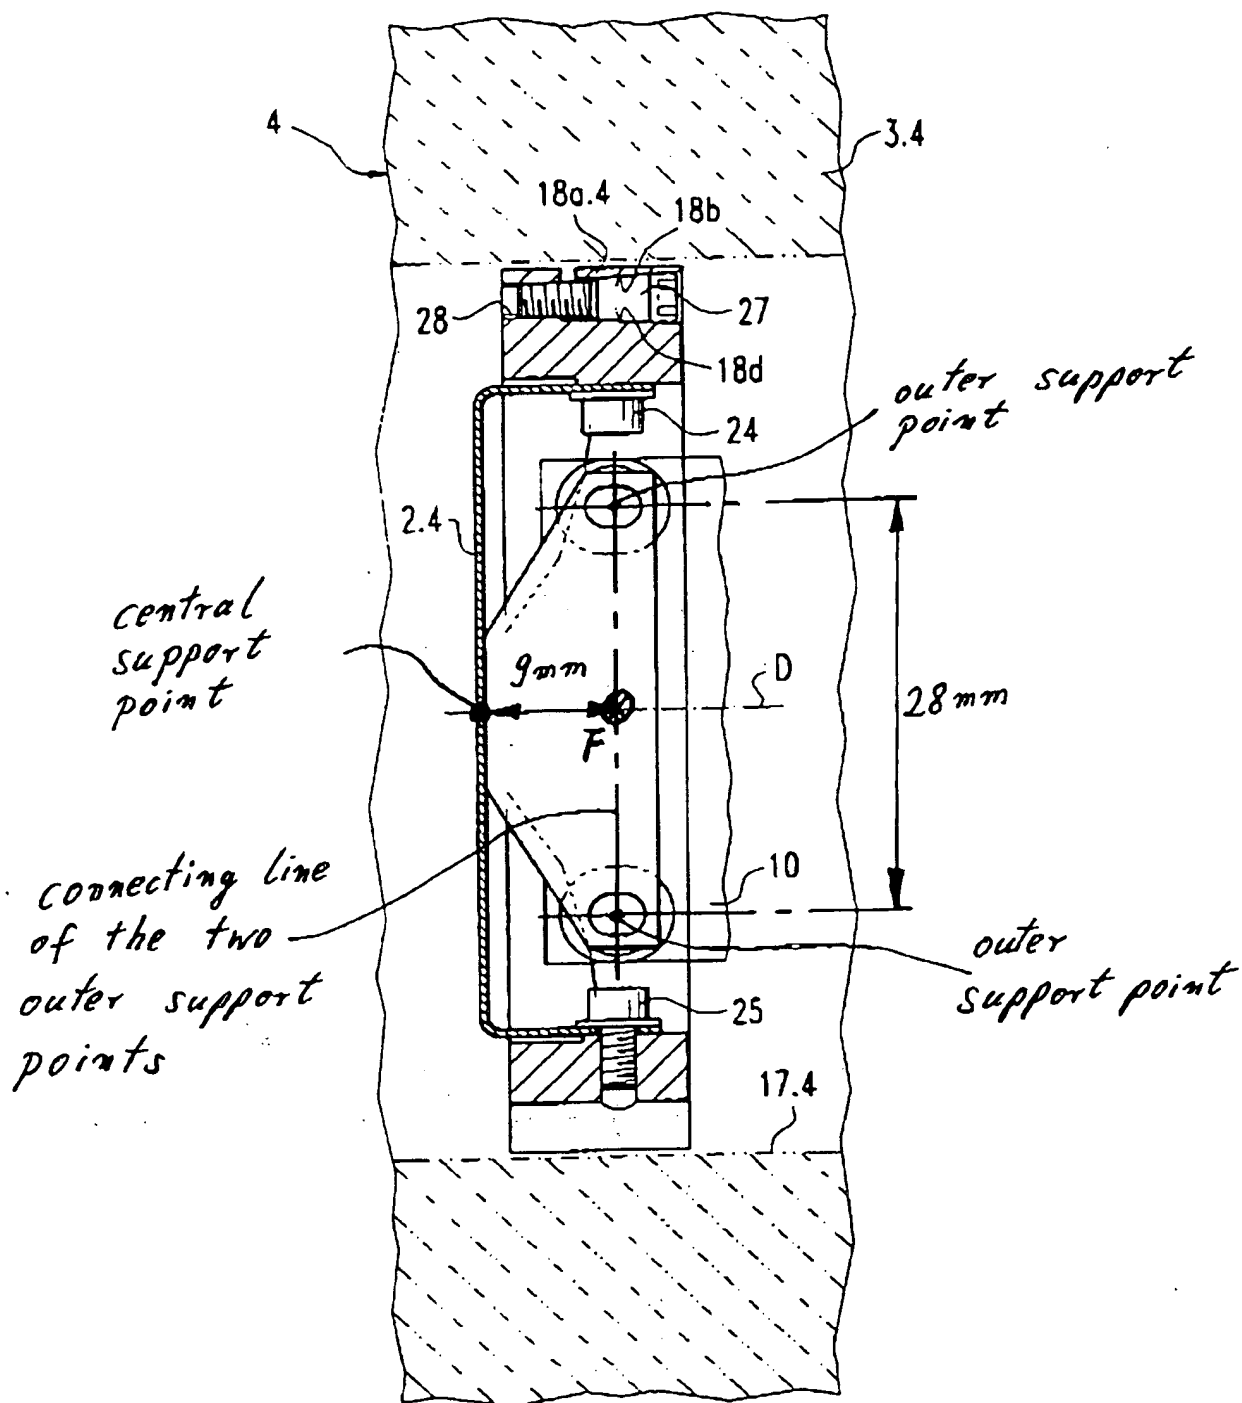 4
3.4
18a.4
18b
28
27
18d
outer support
point
24
2.4
central
support
point
9mm
D
F
28mm
connecting line
of the two
outer support
points
10
outer
support point
25
17.4